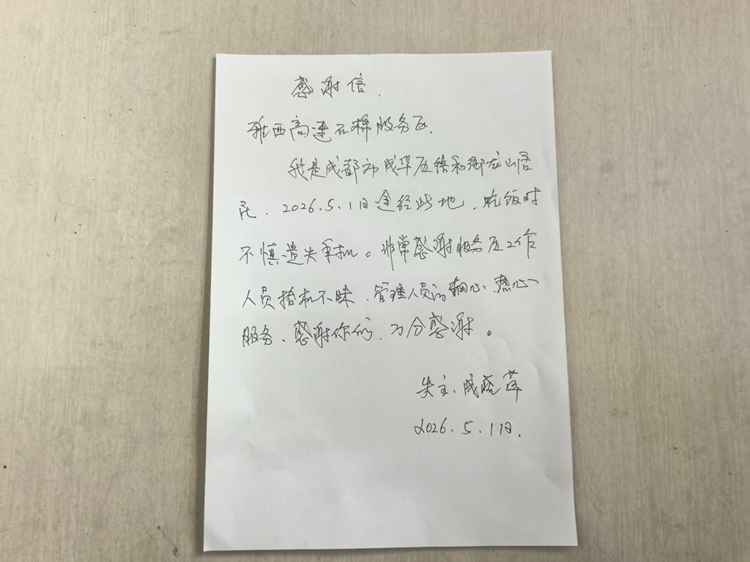 感谢信.
雅西高速石棉服务区.
我是成都市成华区 和御龙山居
民. 2026.5.1日途经此地、吃饭时
不慎遗失手机。非常感谢服务区工作
人员拾机不昧、管理人员的细心、热心
服务、感谢你们、万分感谢。
失主:成晓萍
2026.5.1日.